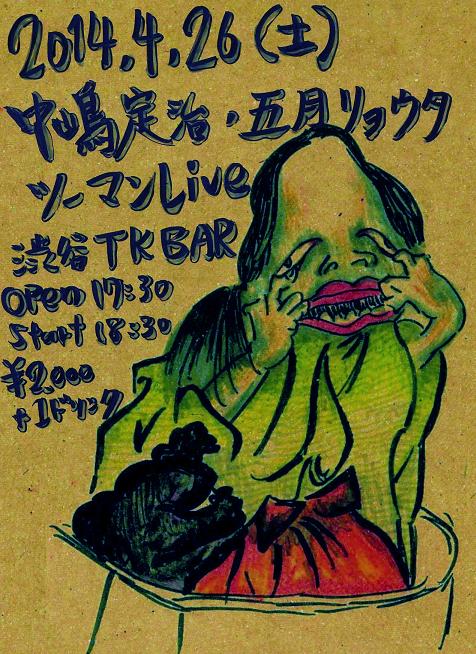 2014.4.26(土)
中嶋定治・五月リョウタ
ツーマンLive
渋谷TKBAR
open 17:30
start 18:30
¥2,000
+1ドリンク